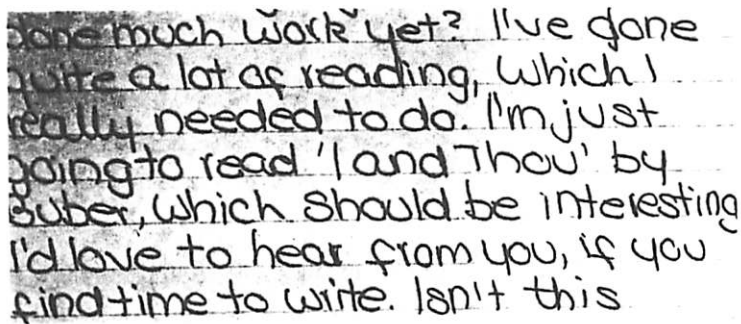 done much work yet? I've done
quite a lot of reading, which I
really needed to do. I'm just
going to read 'I and Thou' by
Buber, which should be interesting
I'd love to hear from you, if you
find time to write. Isn't this